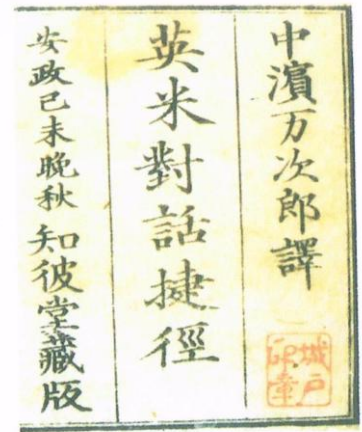 中濱万次郎譯
英米對話捷徑
安政己未晩秋 知彼堂藏版
城戸
印章